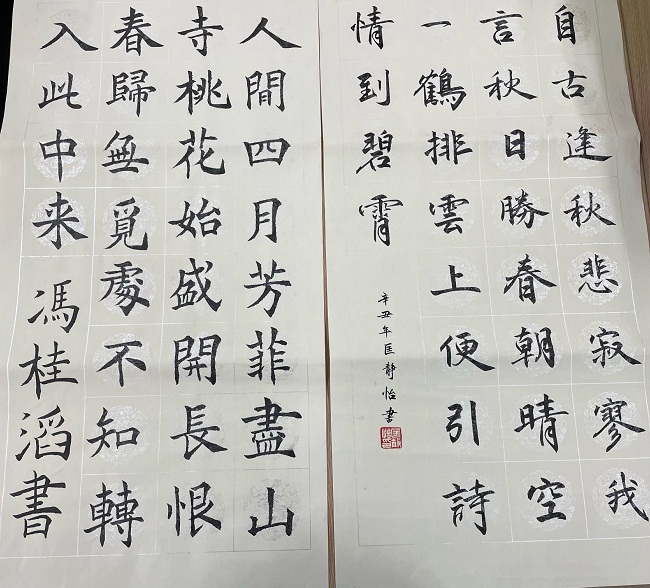 自古逢秋悲寂寥我
言秋日勝春朝晴空
一鶴排雲上便引詩
情到碧霄
辛丑年匡靜怡書
人間四月芳菲盡山
寺桃花始盛開長恨
春歸無覓處不知轉
入此中来馮桂滔書